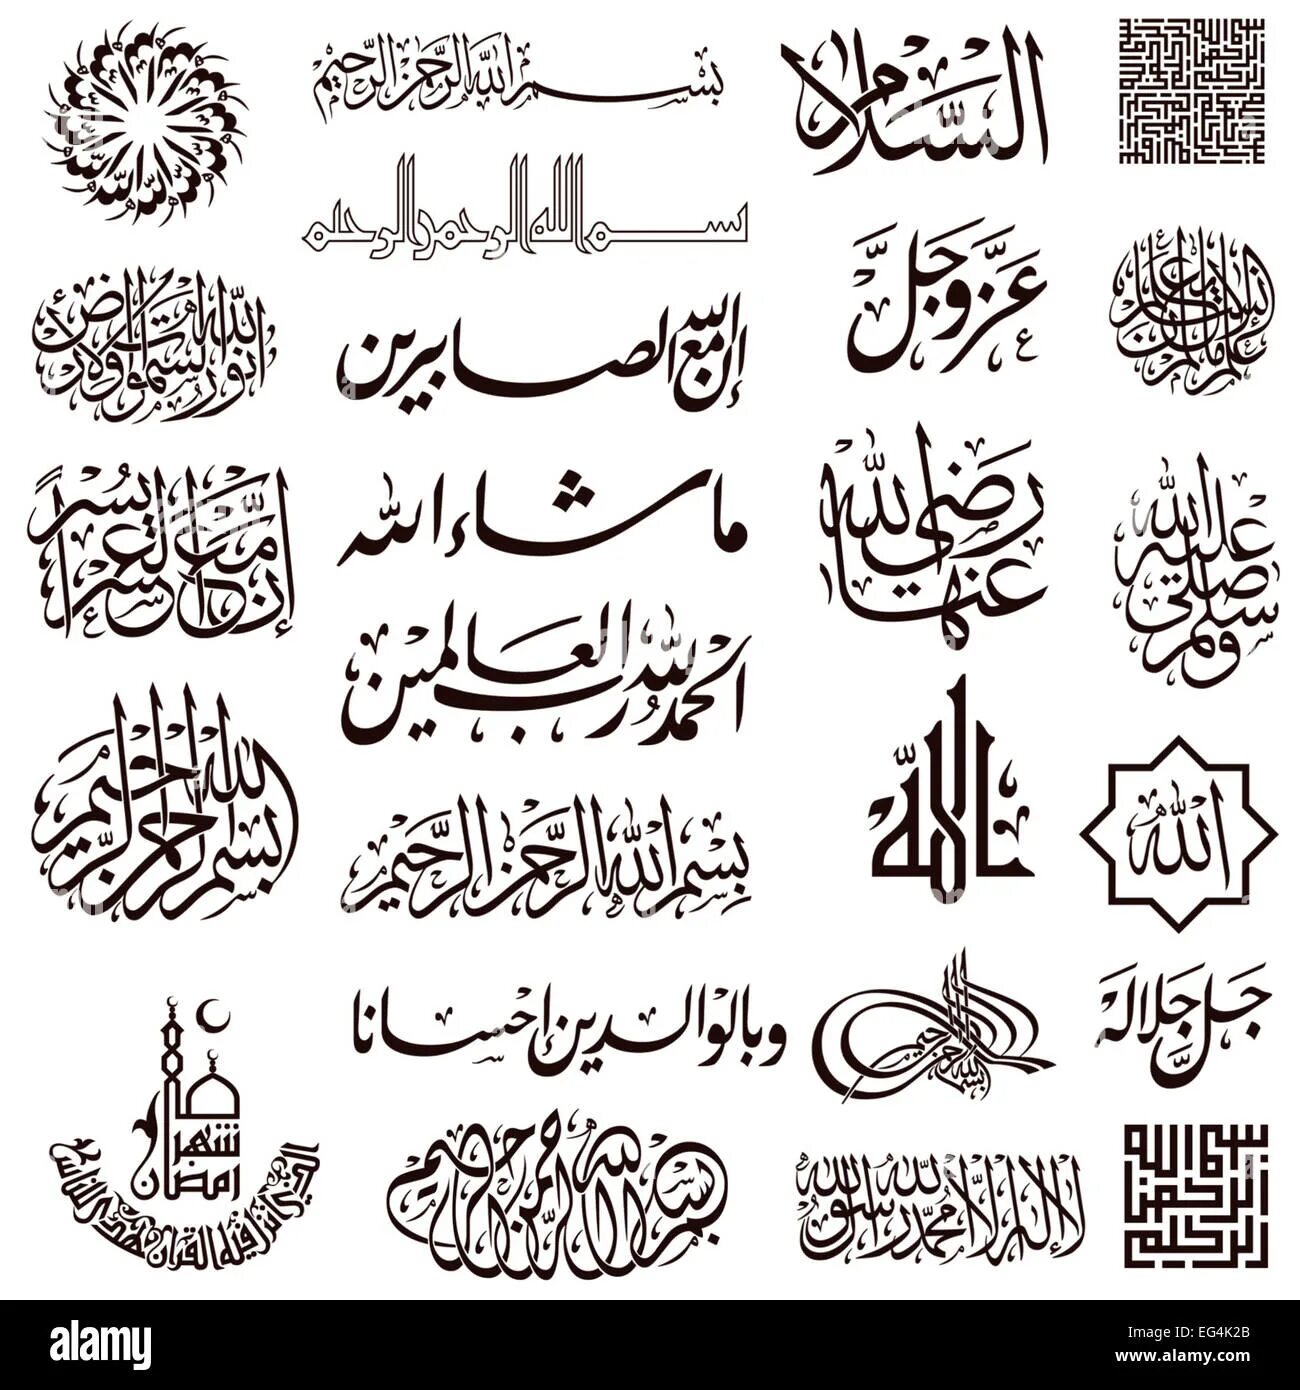 بسم الله الرحمن الرحيم
السلام
بسم الله الرحمن الرحيم
عز وجل
ع
الله نور السموات والأرض
إن الله مع الصابرين
علم الإنسان ما لم يعلم
إن مع العسر يسراً
ما شاء الله
رضي الله عنها
صلى الله عليه وسلم
الحمد لله رب العالمين
بسم الله الرحمن الرحيم
بسم الله الرحمن الرحيم
الله
الله
وبالوالدين إحسانا
بسم الله الرحمن الرحيم
جل جلاله
شهر رمضان
الذي أنزل فيه القرآن هدى للناس
بسم الله الرحمن الرحيم
لا إله إلا الله محمد رسول الله
بسم الله الرحمن الرحيم
alamy
Image ID: EG4K2B
www.alamy.com